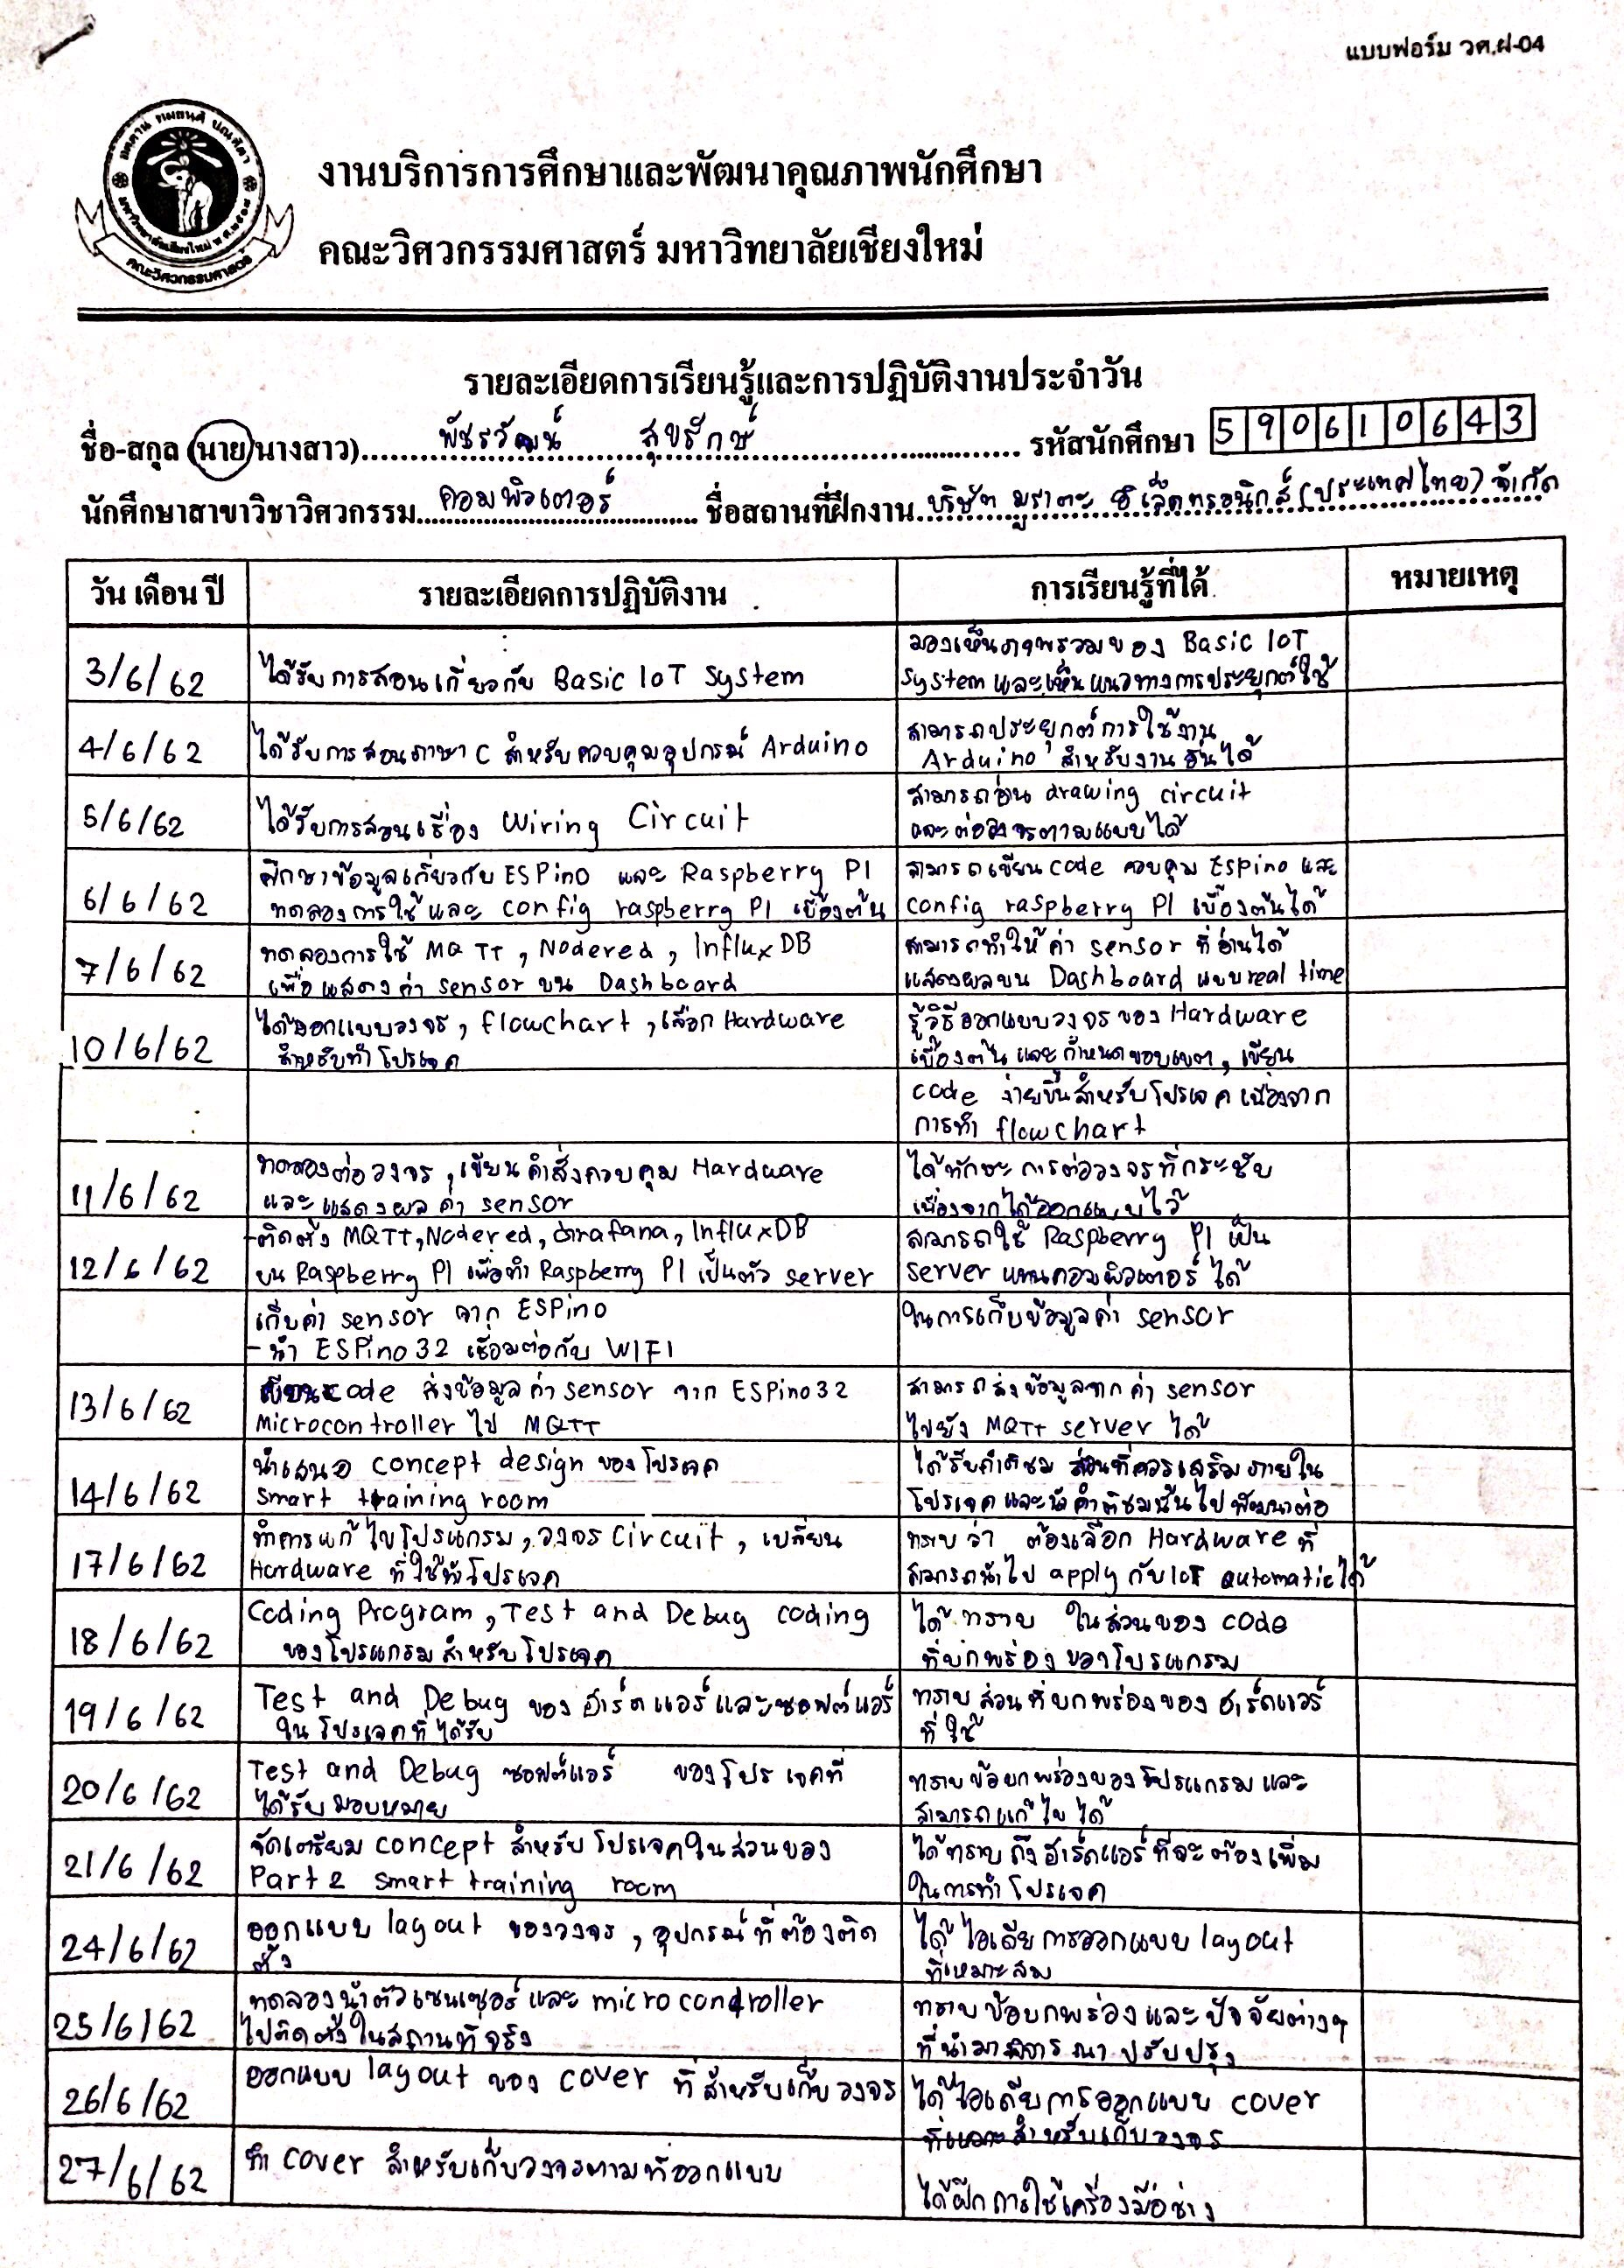 แบบฟอร์ม วศ.ฝ-04
งานบริการการศึกษาและพัฒนาคุณภาพนักศึกษา
คณะวิศวกรรมศาสตร์ มหาวิทยาลัยเชียงใหม่
คณะวิศวกรรมศาสตร์
รายละเอียดการเรียนรู้และการปฏิบัติงานประจำวัน
ชื่อ-สกุล (นาย/นางสาว) พัชรวัฒน์ สุขรักษ์ รหัสนักศึกษา 590610643
นักศึกษาสาขาวิชาวิศวกรรม คอมพิวเตอร์ ชื่อสถานที่ฝึกงาน บริษัท มูราตะ อิเล็คทรอนิกส์ (ประเทศไทย) จำกัด
วัน เดือน ปี รายละเอียดการปฏิบัติงาน การเรียนรู้ที่ได้ หมายเหตุ
3/6/62 ได้รับการสอนเกี่ยวกับ Basic IoT System
มองเห็นภาพรวมของ Basic IoT
System และเห็นแนวทางการประยุกต์ใช้
4/6/62 ได้รับการสอนภาษา C สำหรับควบคุมอุปกรณ์ Arduino
สามารถประยุกต์การใช้งาน
Arduino สำหรับงานอื่นได้
5/6/62 ได้รับการสอนเรื่อง Wiring Circuit
สามารถอ่าน drawing circuit
และต่อวงจรตามแบบได้
6/6/62 ศึกษาข้อมูลเกี่ยวกับ ESPino และ Raspberry PI
ทดลองการใช้ และ config raspberry PI เบื้องต้น
สามารถเขียน code ควบคุม Espino และ
config raspberry PI เบื้องต้นได้
7/6/62 ทดลองการใช้ MQTT, Nodered, InfluxDB
เพื่อแสดงค่า sensor บน Dashboard
สามารถทำให้ค่า sensor ที่อ่านได้
แสดงผลบน Dashboard แบบ real time
10/6/62 ได้ออกแบบวงจร, flowchart, เลือก Hardware
สำหรับทำโปรเจค
รู้วิธีออกแบบวงจรของ Hardware
เบื้องต้น และกำหนดขอบเขต, เขียน
code ง่ายขึ้นสำหรับโปรเจค เนื่องจาก
การทำ flowchart
11/6/62 ทดลองต่อวงจร, เขียนคำสั่งควบคุม Hardware
และแสดงผลค่า sensor
ได้ทักษะการต่อวงจรที่กระชับ
เนื่องจากได้ออกแบบไว้
12/6/62 -ติดตั้ง MQTT, Nodered, Grafana, InfluxDB
บน Raspberry PI เพื่อทำ Raspberry PI เป็นตัว server
สามารถใช้ Raspberry PI เป็น
server แทนคอมพิวเตอร์ได้
เก็บค่า sensor จาก ESPino
- นำ ESPino32 เชื่อมต่อกับ WIFI
ในการเก็บข้อมูลค่า sensor
13/6/62 เขียน code ส่งข้อมูลค่า sensor จาก ESPino32
Microcontroller ไป MQTT
สามารถส่งข้อมูลจากค่า sensor
ไปยัง MQTT server ได้
14/6/62 นำเสนอ concept design ของโปรเจค
smart training room
ได้รับคำติชม ส่วนที่ควรเสริมภายใน
โปรเจค และนำคำติชมนั้นไปพัฒนาต่อ
17/6/62 ทำการแก้ไขโปรแกรม, วงจร Circuit, เปลี่ยน
Hardware ที่ใช้ทำโปรเจค
ทราบว่า ต้องเลือก Hardware ที่
สามารถนำไป apply กับ IoT automatic ได้
18/6/62 Coding Program, Test and Debug coding
ของโปรแกรมสำหรับโปรเจค
ได้ทราบ ในส่วนของ code
ที่บกพร่องของโปรแกรม
19/6/62 Test and Debug ของฮาร์ดแวร์และซอฟต์แวร์
ในโปรเจคที่ได้รับ
ทราบส่วนที่บกพร่องของฮาร์ดแวร์
ที่ใช้
20/6/62 Test and Debug ซอฟต์แวร์ ของโปรเจคที่
ได้รับมอบหมาย
ทราบข้อบกพร่องของโปรแกรมและ
สามารถแก้ไขได้
21/6/62 จัดเตรียม concept สำหรับโปรเจคในส่วนของ
Part 2 smart training room
ได้ทราบถึงฮาร์ดแวร์ที่จะต้องเพิ่ม
ในการทำโปรเจค
24/6/62 ออกแบบ layout ของวงจร, อุปกรณ์ที่ต้องติด
ตั้ง
ได้ไอเดียการออกแบบ layout
ที่เหมาะสม
25/6/62 ทดลองนำตัวเซนเซอร์และ microcontroller
ไปติดตั้งในสถานที่จริง
ทราบข้อบกพร่องและปัจจัยต่างๆ
ที่นำมาพิจารณาปรับปรุง
26/6/62 ออกแบบ layout ของ cover ที่สำหรับเก็บวงจร
ได้ไอเดียการออกแบบ cover
ที่เหมาะสำหรับเก็บวงจร
27/6/62 ทำ cover สำหรับเก็บวงจรตามที่ออกแบบ
ได้ฝึกการใช้เครื่องมือช่าง